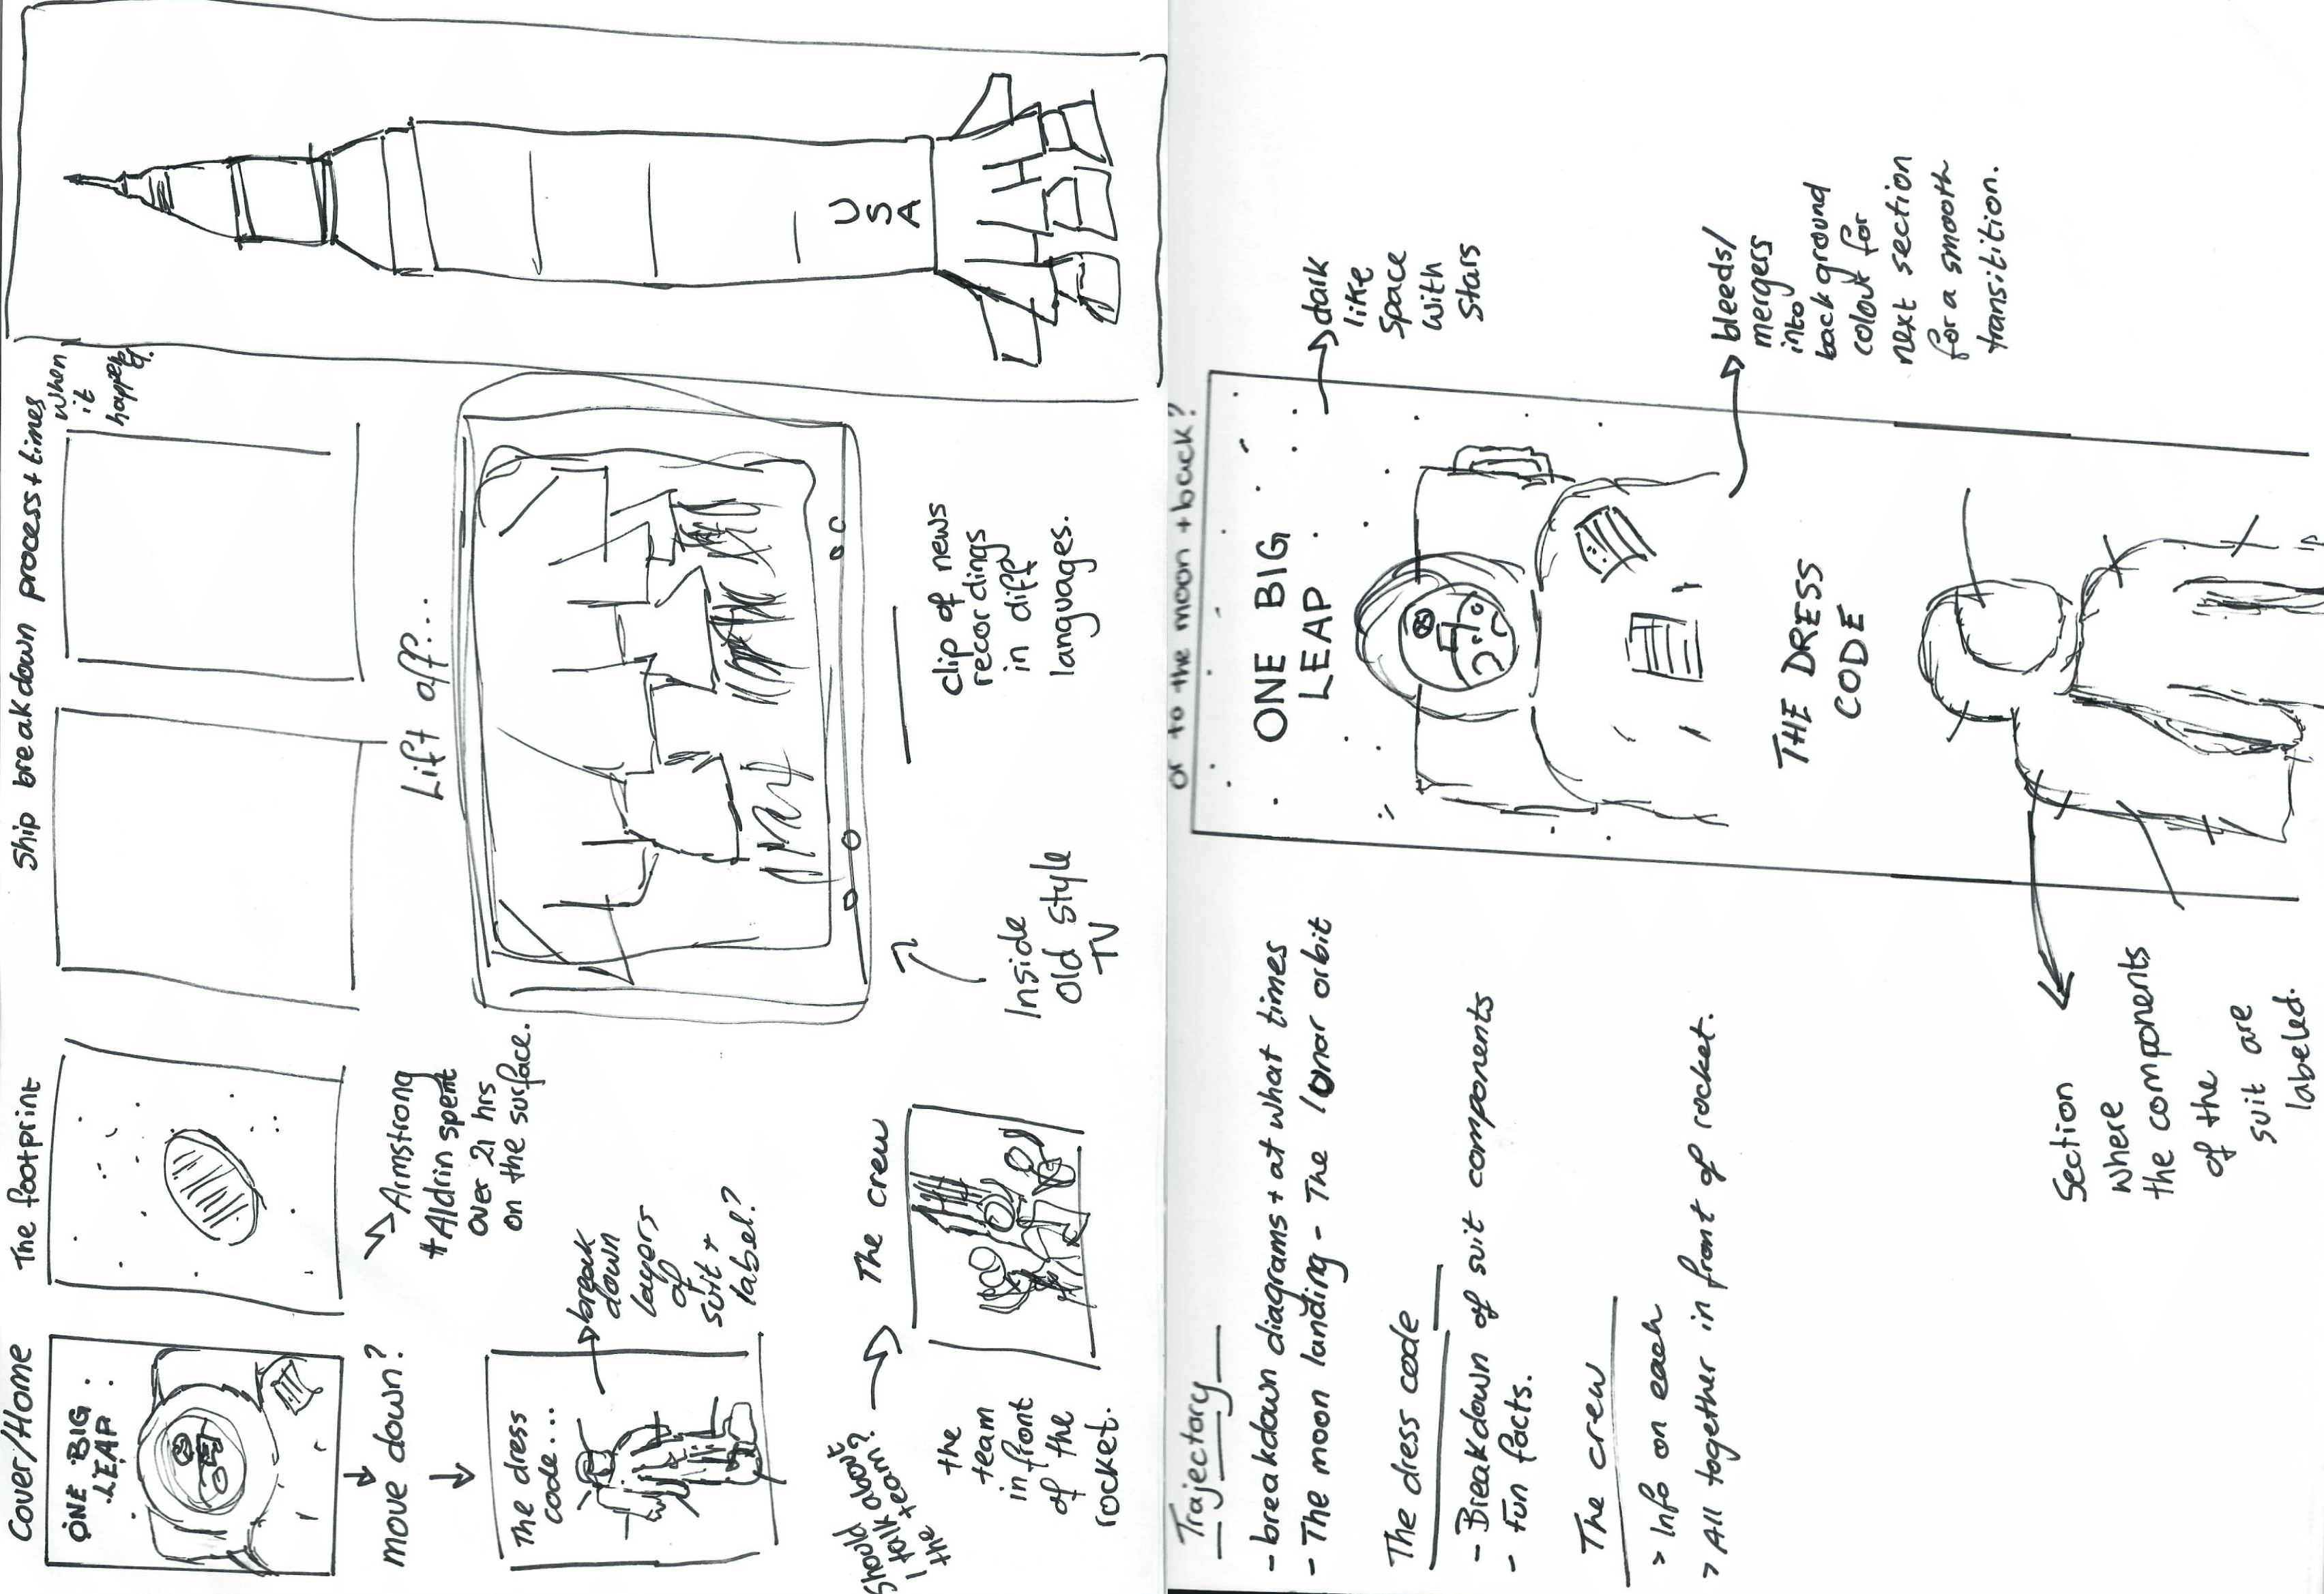 Cover/Home
ONE BIG
LEAP
move down?
The dress
code...
break
down
layers
of
suit +
label?
Should
I talk about
the team?
The crew
the
team
in front
of the
rocket.
The footprint
Armstrong
+ Aldrin spent
over 21 hrs
on the surface.
Ship breakdown process + times
when
it
happened.
Lift off...
Inside
Old style
TV
clip of news
recordings
in diff
languages.
USA
Trajectory
- breakdown diagrams + at what times
- The moon landing - The lunar orbit
The dress code
- Breakdown of suit components
- fun facts.
The crew
> Info on each
> All together in front of rocket.
or to the moon + back?
ONE BIG
LEAP
dark
like
space
with
stars
bleeds/
mergers
into
background
colour for
next section
for a smooth
transitition.
THE DRESS
CODE
Section
where
the components
of the
suit are
labeled.